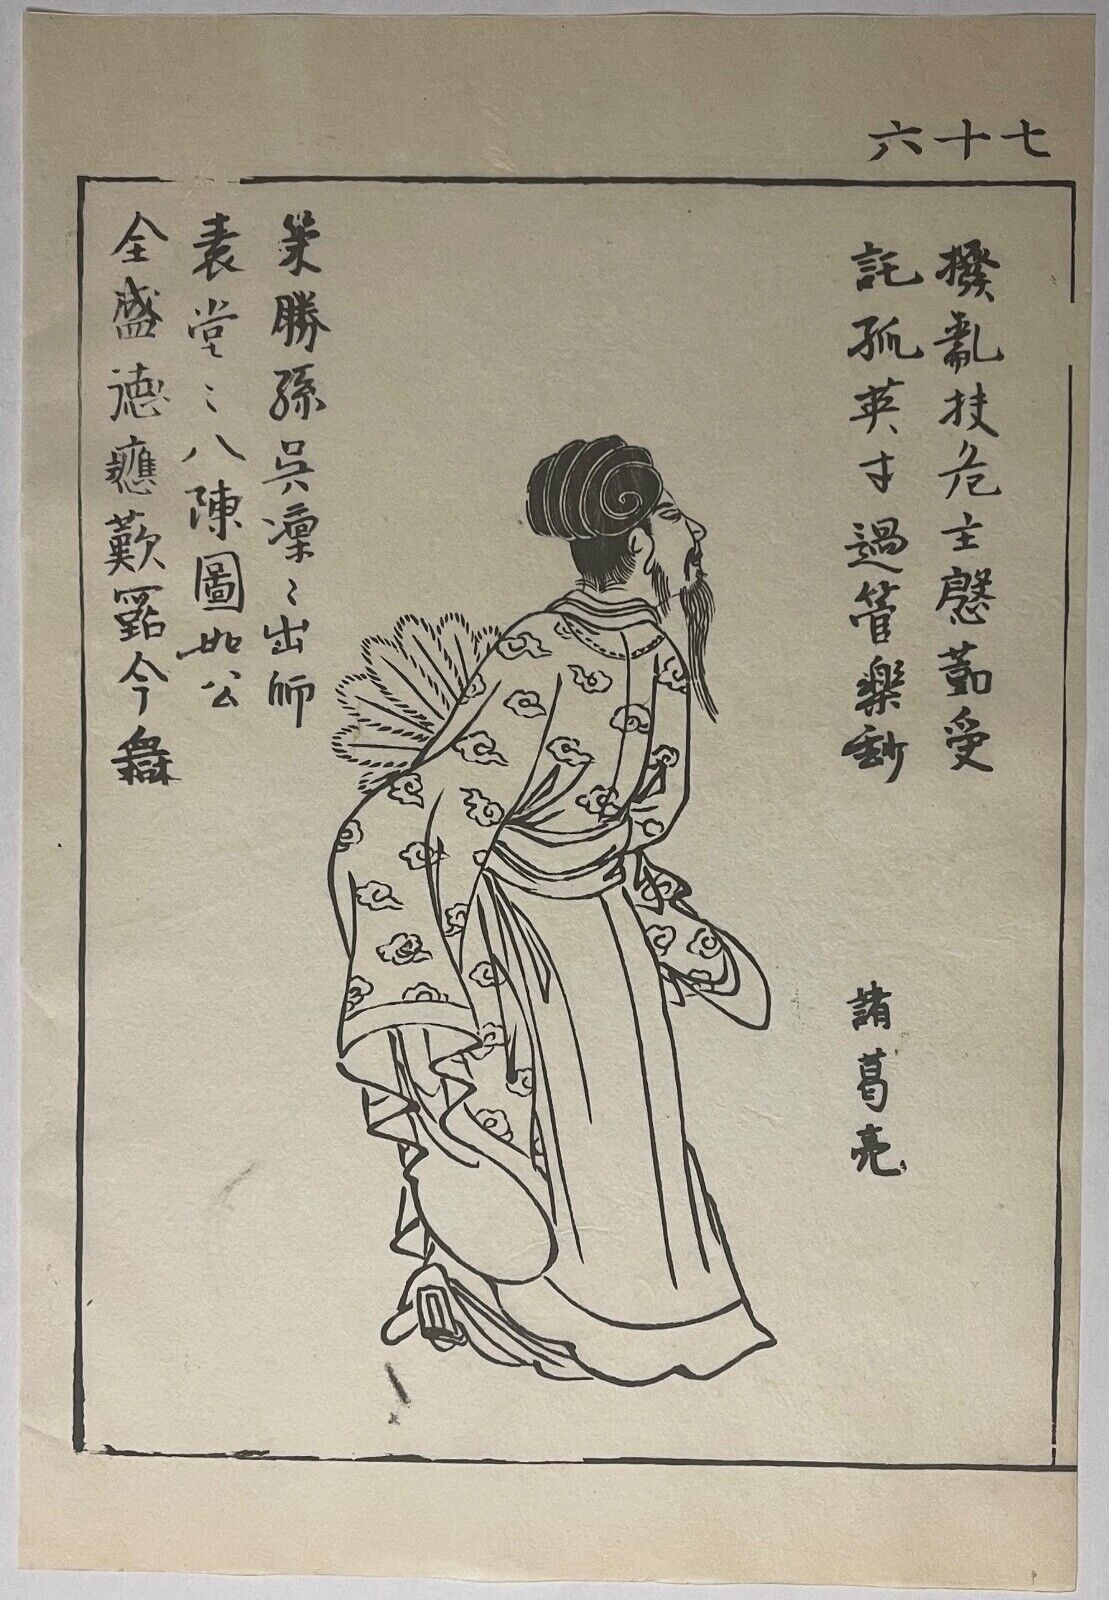 七十六
撥亂扶危主慇懃受
託孤英才過管樂玅
策勝孫吳凜〻出師
表堂〻八陳圖如公
全盛德應歎古今無
諸葛亮